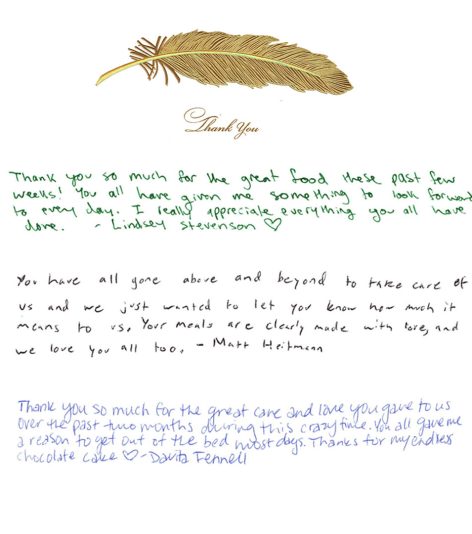 Thank You
Thank you so much for the great food these past few
weeks! You all have given me something to look forward
to every day. I really appreciate everything you all have
done. - Lindsey Stevenson ♡
You have all gone above and beyond to take care of
us and we just wanted to let you know how much it
means to us. Your meals are clearly made with love, and
we love you all too. - Matt Heitmann
Thank you so much for the great care and love you gave to us
over the past two months during this crazy time. You all gave me
a reason to get out of the bed most days. Thanks for my endless
chocolate cake ♡ - Davita Fennell